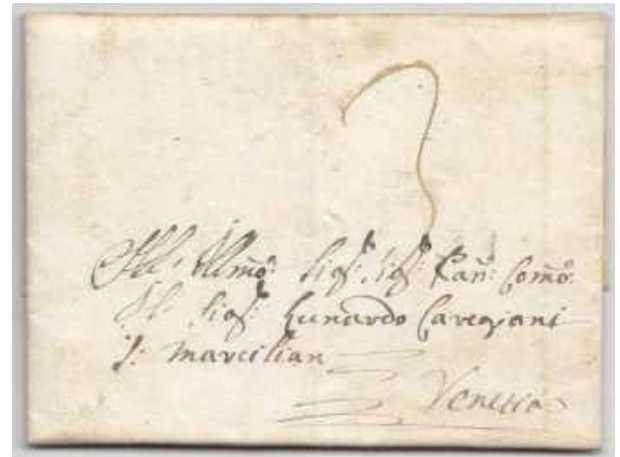 All' Illmo: Sigr: Sigr: Pan: Comō:
Il Sigr: Lunardo Caregiani
S: Marcilian
Venetia